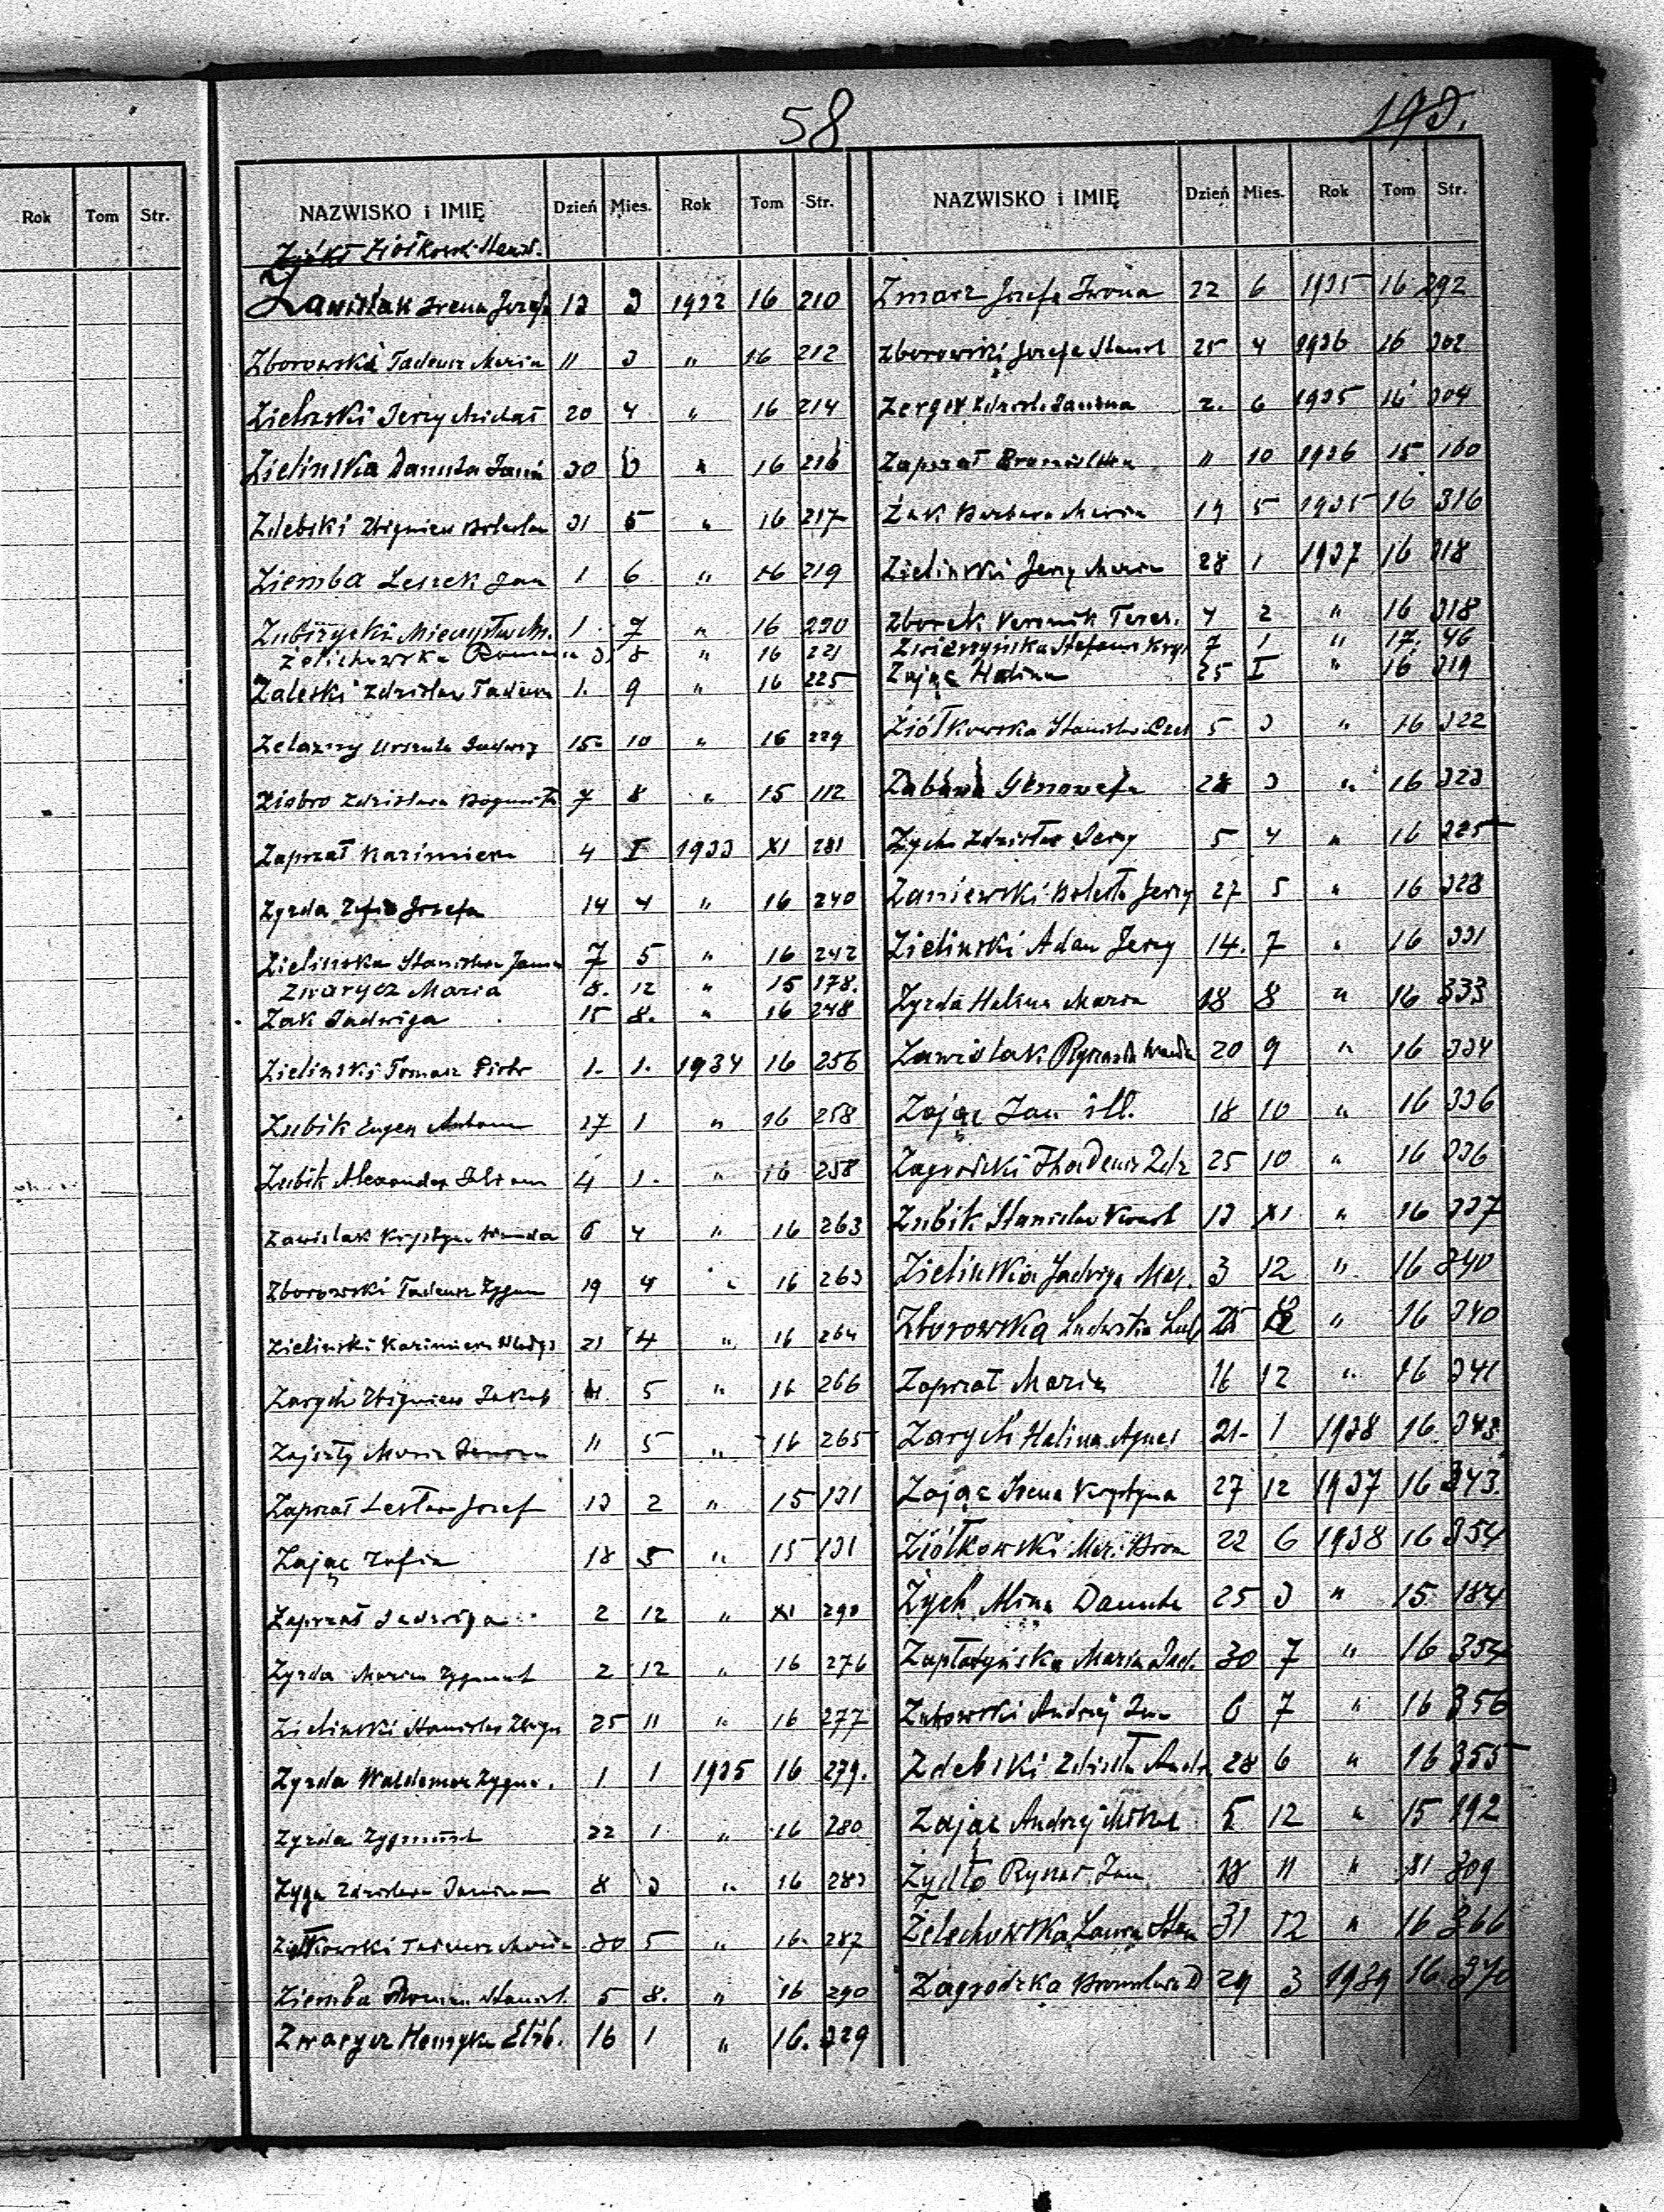 58
193.
Rok Tom Str.
NAZWISKO i IMIĘ Dzień Mies. Rok Tom Str.
Ziółkowsk Stanisł.
Zawiślak Irena Józefa 13 3 1932 16 210
Zborowski Tadeusz Maria 11 3 " 16 212
Zieliński Jerzy Michał 20 4 " 16 214
Zielinska Danuta Jani 30 " 16 216
Zdebski Zbigniew Bolesław 31 5 " 16 217
Ziemba Leszek Jan 1 6 " 16 219
Zubrzycki Mieczysław 1 7 " 16 220
Żelichowska Romana 31 8 " 16 221
Zaleski Zdzisław Tadeusz 1. 9 " 16 225
Żelazny Urszula Jadwig 15 10 " 16 229
Ziobro Zdzisława Bogumiła 7 8 " 15 112
Zaprzał Kazimiera 4 I 1933 XI 281
Zyzda Zofia Józefa 14 4 " 16 240
Zielinska Stanisława Janina 7 5 " 16 242
Zwarycz Maria 8. 12 " 15 178.
Żak Jadwiga 15 8. " 16 248
Zieliński Tomasz Piotr 1. 1. 1934 16 256
Zubik Eugen Antoni 27 1 " 16 258
Zubik Alexander 4 1. " 16 258
Zawislak Krystyna Wanda 6 4 " 16 263
Zborowski Tadeusz Zygm 19 4 " 16 263
Zielinski Kazimierz Władys 21 4 " 16 264
Zarych Zbigniew Jakob 5 " 16 266
Maria 11 5 " 16 265
Zaprzał Lesław Józef 13 2 " 15 131
Zając Zofia 18 5 " 15 131
Zaprzał Jadwiga 2 12 " XI 290
Zyzda Marian Zygmunt 2 12 " 16 276
Zielinski Stanisław Zbign 25 11 " 16 277
Zyzda Waldemar Zygm. 1 1 1935 16 279.
Zyzda Zygmunt 22 1 " 16 280
Zyga Zdzisława Janina 8 3 " 16 283
Ziółkowski Tadeusz Maria 30 5 " 16. 287
Ziemba Roman Stanisł. 5 8. " 16 290
Zwarycz Henryka Elżb. 16 1 " 16. 329
NAZWISKO i IMIĘ Dzień Mies. Rok Tom Str.
Zmarz Józefa Iwona 22 6 1935 16 292
Zborowski Józefa Stanisł 25 4 1936 16 302
Zdzisł. Janina 2. 6 1935 16 304
Zaprzał Bronisława " 10 1936 15 160
Żak Barbara Maria 14 5 1935 16 316
Zielinski Jerzy Maria 28 1 1937 16 318
Zborek Veronik Teres. 4 2 " 16 318
Zwierzyńska Stefania Krys 7 1 " 17. 46
Zając Halina 25 I " 16 319
Ziółkowska Stanisława 5 3 " 16 322
Żabawa Genowefa 28 3 " 16 323
Zych Zdzisław Jerzy 5 4 " 16 325
Zaniewski Bolesł Jerzy 27 5 " 16 328
Zielinski Adam Jerzy 14. 7 " 16 331
Zyzda Helena Maria 18 8 " 16 333
Zawiślak Ryszarda Wanda 20 9 " 16 334
Zając Jan ill. 18 10 " 16 336
Zagrodzki Thadeusz Zdz 25 10 " 16 336
Zubik Stanisław 13 XI " 16 337
Zielinska Jadwiga Maz. 3 12 " 16 340
Zborowska Ludwika " 16 340
Zaprzał Maria 16 12 " 16 341
Zarych Halina Agnes 21 1 1938 16 343
Zając Irena Krystyna 27 12 1937 16 343.
Ziółkowski Mar. Bron 22 6 1938 16 354
Żych Alina Danuta 25 3 " 15 184
Zapłatyńska Maria Jad. 30 7 " 16 354
Żukowski Andrzej Jan 6 7 " 16 356
Zdebski Zdzisła Andr 28 6 " 16 355
Zając Andrzej Mikoł 5 12 " 15 192
Żydło Ryszar Jan 18 11 " XI 309
Żelechowska Laura Stan 31 12 " 16 366
Zagrodzka Bronisława D 29 3 1939 16 370